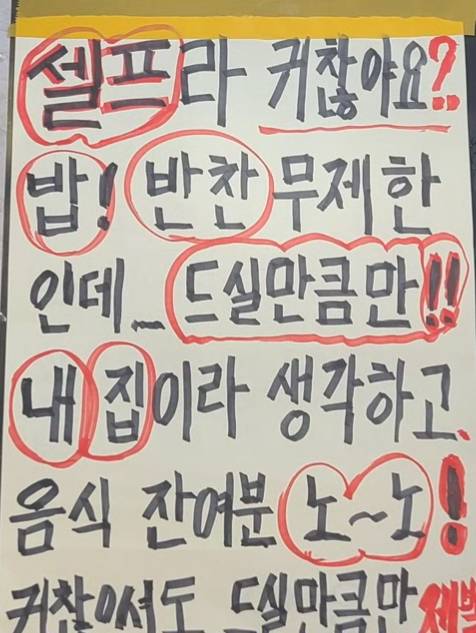 셀프라 귀찮아요?
밥! 반찬 무제한
인데_ 드실만큼만!!
내 집이라 생각하고.
음식 잔여분 노~노!
귀찮아서도 드실만큼만 제발